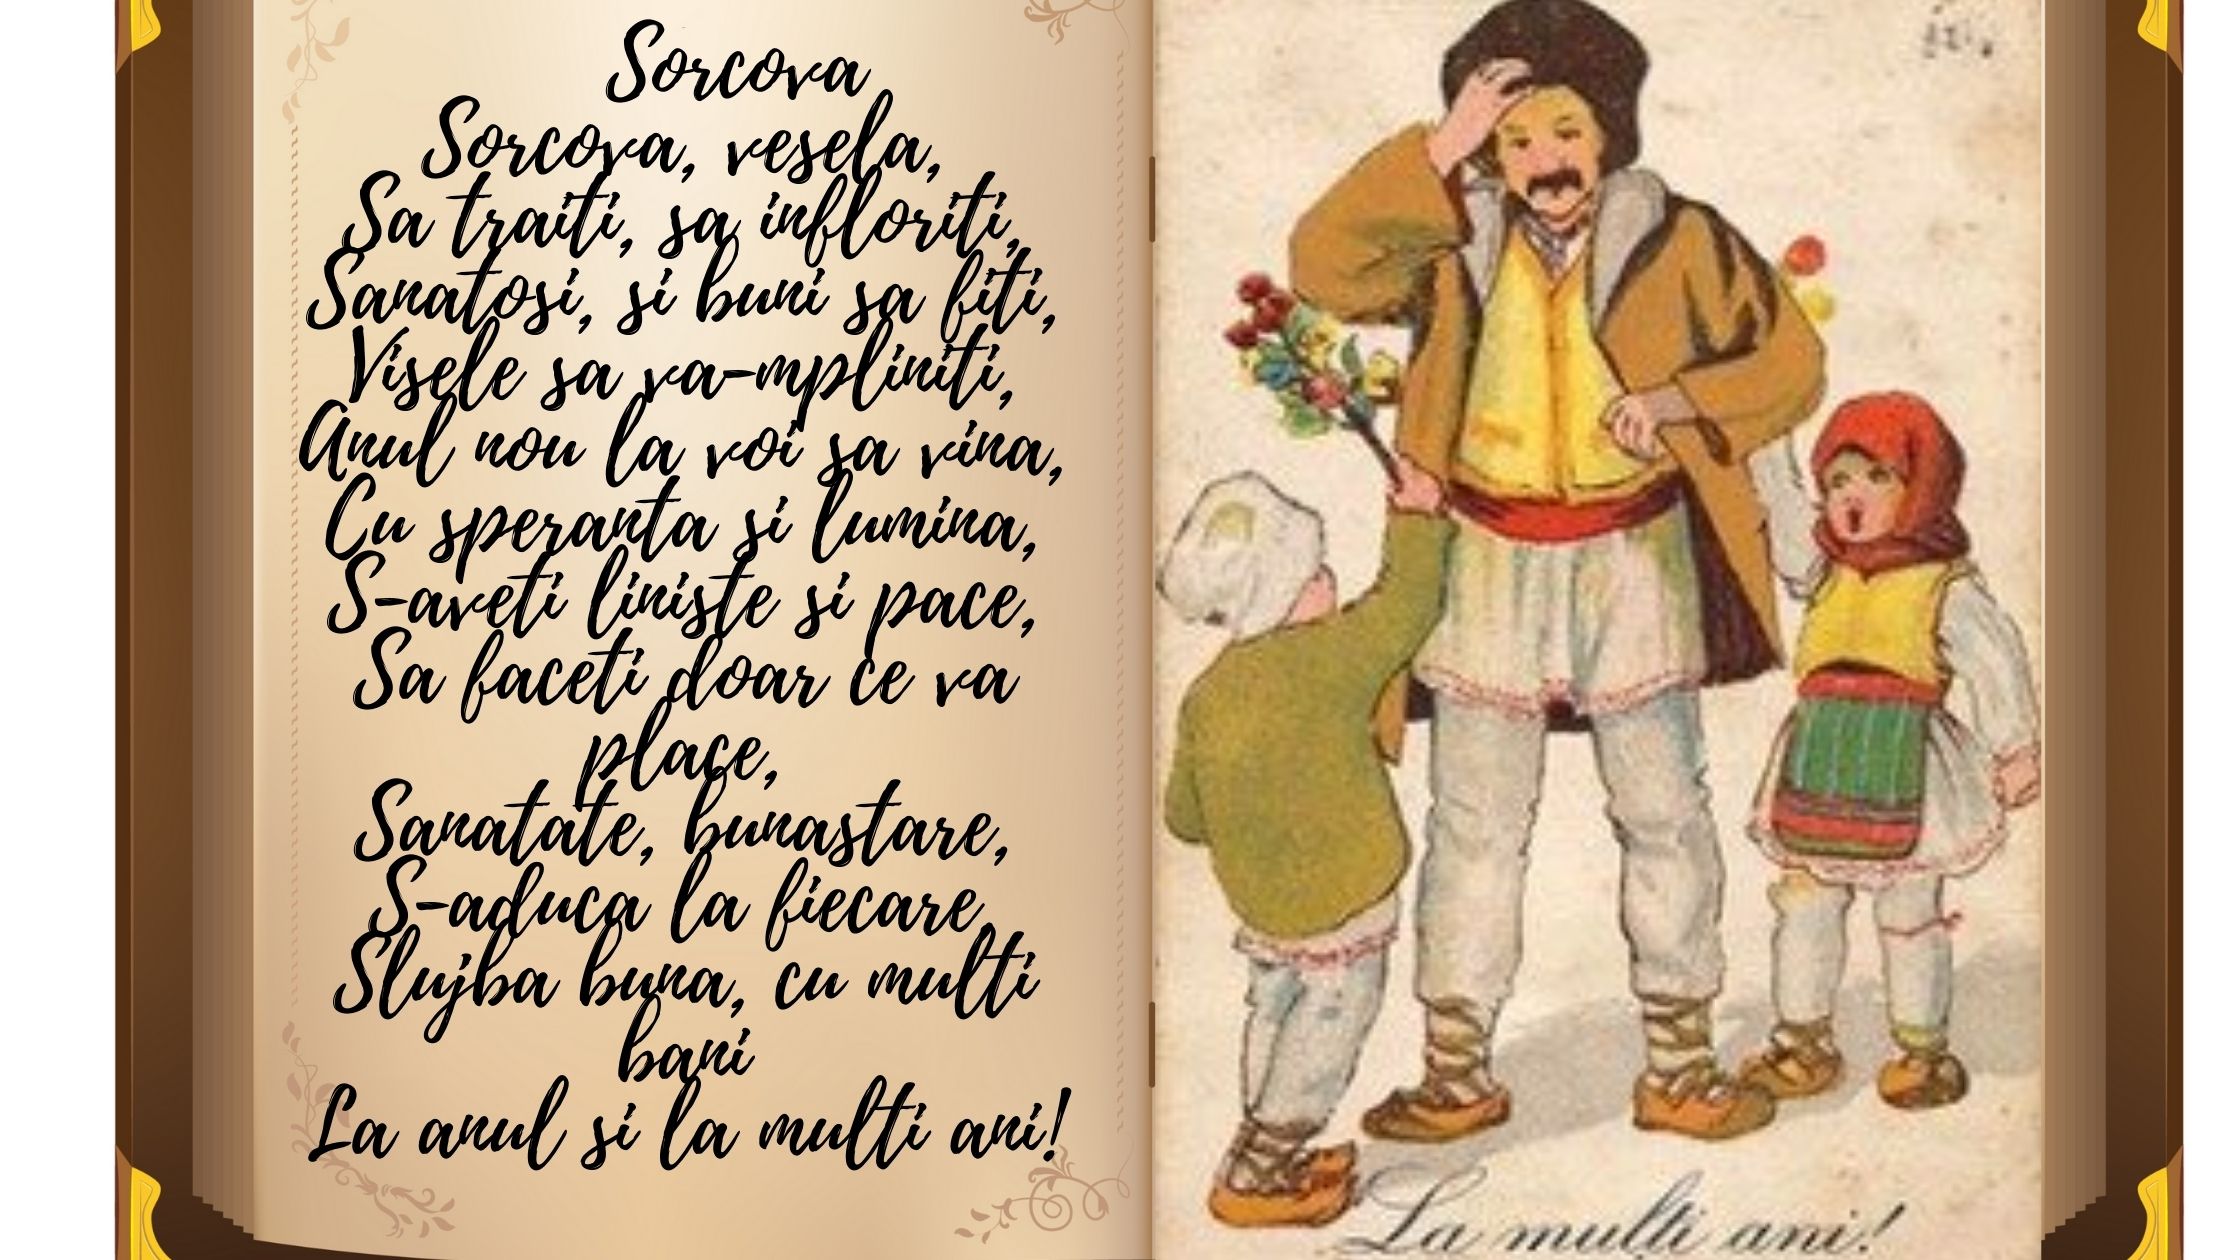 Sorcova
Sorcova, vesela,
Sa traiti, sa infloriti,
Sanatosi, si buni sa fiti,
Visele sa va-mpliniti,
Anul nou la voi sa vina,
Cu speranta si lumina,
S-aveti liniste si pace,
Sa faceti doar ce va
place,
Sanatate, bunastare,
S-aduca la fiecare,
Slujba buna, cu multi
bani
La anul si la multi ani!
La mulți ani!